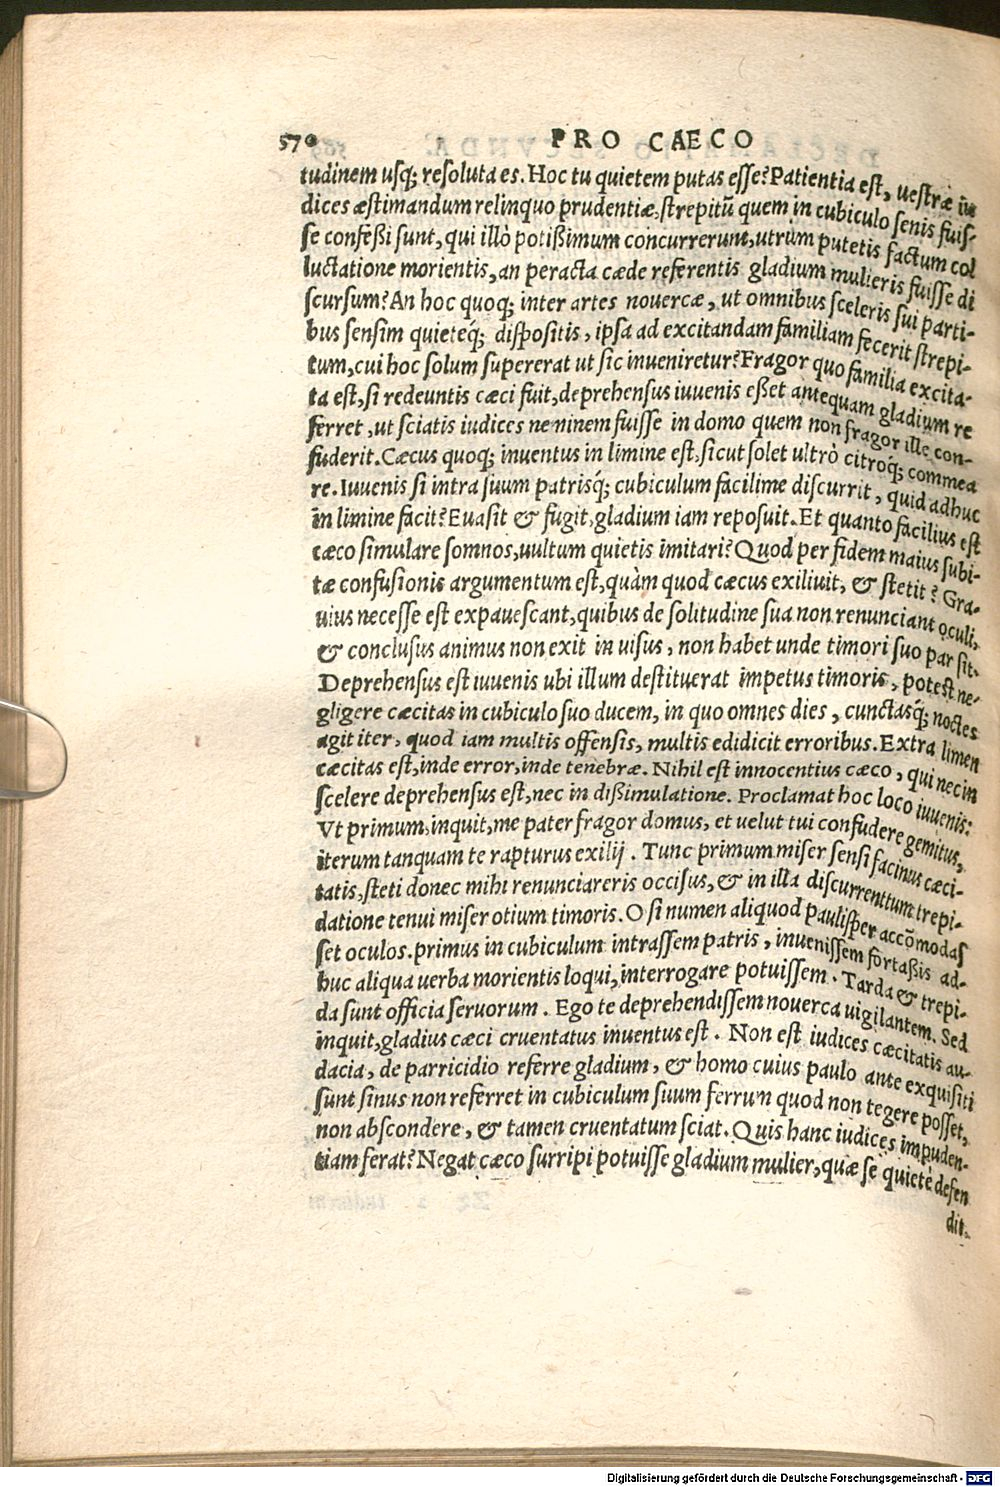 570 PRO CAECO
tudinem usq; resoluta es. Hoc tu quietem putas esse? Patientia est, uestræ iu
dices æstimandum relinquo prudentiæ, strepitũ quem in cubiculo senis fuis-
se confeßi sunt, qui illò potißimum concurrerunt, utrum putetis factum col
luctatione morientis, an peracta cæde referentis gladium mulieris fuisse di
scursum? An hoc quoq; inter artes nouercæ, ut omnibus sceleris sui parti-
bus sensim quieteq́; dispositis, ipsa ad excitandam familiam fecerit strepi-
tum, cui hoc solum supererat ut sic inueniretur? Fragor quo familia excita-
ta est, si redeuntis cæci fuit, deprehensus iuuenis eßet antequam gladium re
ferret, ut sciatis iudices neminem fuisse in domo quem non fragor ille con-
fuderit. Cæcus quoq; inuentus in limine est, sicut solet ultrò citroq́; commea
re. Iuuenis si intra suum patrisq́; cubiculum facilime discurrit, quid adhuc
in limine facit? Euasit & fugit, gladium iam reposuit. Et quanto facilius est
cæco simulare somnos, uultum quietis imitari? Quod per fidem maius subi-
tæ confusionis argumentum est, quàm quod cæcus exiliuit, & stetit? Gra-
uius necesse est expauescant, quibus de solitudine sua non renunciant oculi,
& conclusus animus non exit in uisus, non habet unde timori suo par sit.
Deprehensus est iuuenis ubi illum destituerat impetus timoris, potest ne-
gligere cæcitas in cubiculo suo ducem, in quo omnes dies, cunctasq́; noctes
agit iter, quod iam multis offensis, multis edidicit erroribus. Extra limen
cæcitas est, inde error, inde tenebræ. Nihil est innocentius cæco, qui nec in
scelere deprehensus est, nec in dißimulatione. Proclamat hoc loco iuuenis:
Vt primum, inquit, me pater fragor domus, et uelut tui confudere gemitus,
iterum tanquam te rapturus exilij. Tunc primum miser sensi facinus cæci-
tatis, steti donec mihi renunciareris occisus, & in illa discurrentium trepi-
datione tenui miser otium timoris. O si numen aliquod paulisper accõmodas
set oculos, primus in cubiculum intrassem patris, inuenissem fortaßis ad-
huc aliqua uerba morientis loqui, interrogare potuissem. Tarda & trepi-
da sunt officia seruorum. Ego te deprehendissem nouerca uigilantem. Sed
inquit, gladius cæci cruentatus inuentus est. Non est iudices cæcitatis au-
dacia, de parricidio referre gladium, & homo cuius paulo ante exquisiti
sunt sinus non referret in cubiculum suum ferrum quod non tegere posset,
non abscondere, & tamen cruentatum sciat. Quis hanc iudices impuden-
tiam ferat? Negat cæco surripi potuisse gladium mulier, quæ se quietè defen
dit.
Digitalisierung gefördert durch die Deutsche Forschungsgemeinschaft - DFG